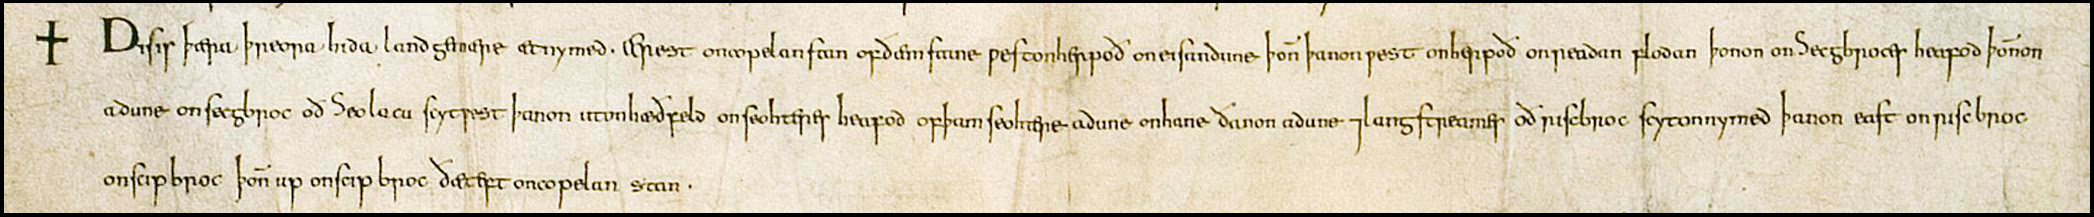 ✝ Ðis is þæra þreora hida landgemære æt nymed. ærest on copelan stan of ðam stane ƿest on herpoð on eisandune þon̄ þanon ƿest on herpoð on readan flodan þonon on Secgbroces heafod þon̄on
adune on secgbroc oð Seo lacu scyt ƿest þanon ut on hæðfeld on seohteres heafod of þam seohtere adune on hane ðanon adune ⁊lang streames oð riscbroc scyt on nymed þanon east on riscbroc
on scipbroc þon̄ up on scipbroc ðæt eft on copelan stan.